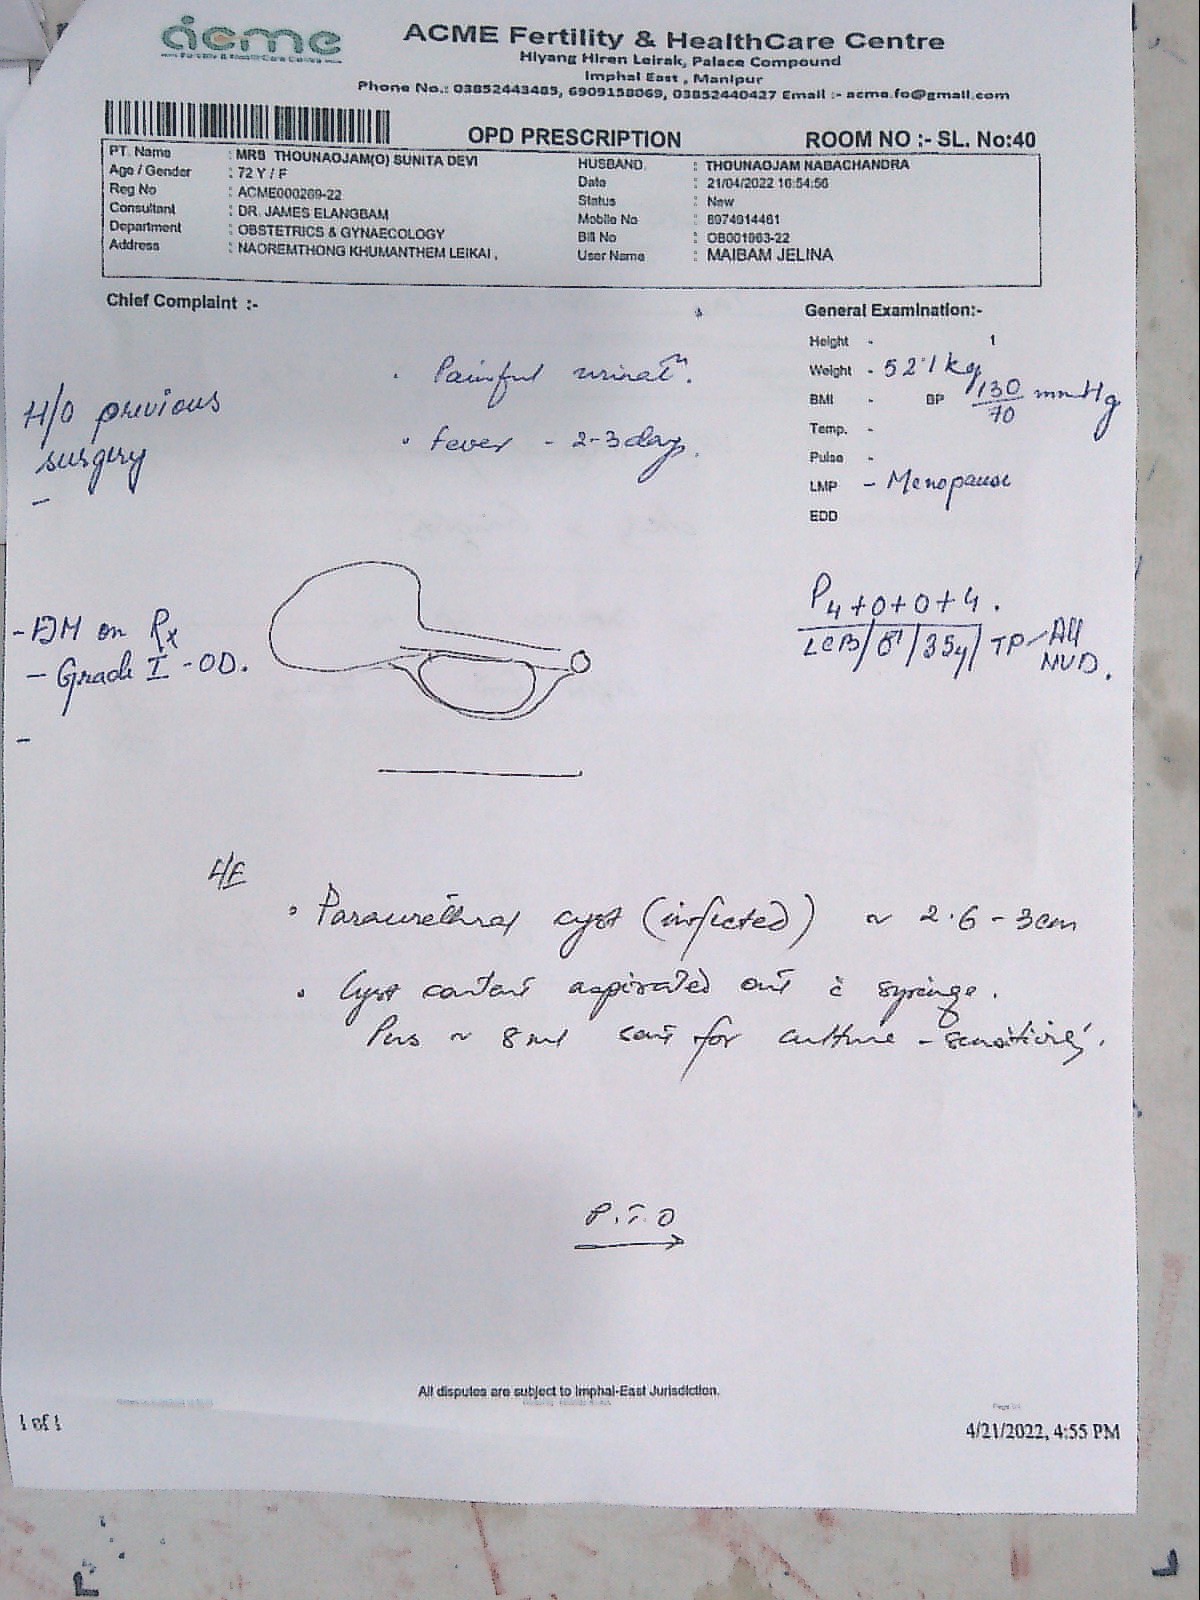 acme
Fertility & HealthCare Centre
ACME Fertility & HealthCare Centre
Hiyang Hiren Leirak, Palace Compound
Imphal East , Manipur
Phone No.: 03852443485, 6909158069, 03852440427 Email :- acme.fo@gmail.com
OPD PRESCRIPTION ROOM NO :- SL. No:40
PT. Name : MRS THOUNAOJAM(O) SUNITA DEVI HUSBAND. : THOUNAOJAM NABACHANDRA
Age / Gender : 72 Y / F Date : 21/04/2022 16:54:56
Reg No : ACME000269-22 Status : New
Consultant : DR. JAMES ELANGBAM Mobile No : 8974914461
Department : OBSTETRICS & GYNAECOLOGY Bill No : OB001963-22
Address : NAOREMTHONG KHUMANTHEM LEIKAI , User Name : MAIBAM JELINA
Chief Complaint :-
General Examination:-
Height - 1
Weight - 52.1 kg
BMI - BP 130/70 mmHg
Temp. -
Pulse -
LMP - Menopause
EDD
. Painful urinatn.
. fever - 2-3 days.
H/O previous
surgery
-
- DM on Rx
- Grade I - OD.
-
P4+0+0+4.
LCB/ /35y/ TP - All
NVD.
. Paraurethral cyst (infected) ~ 2.6 - 3cm
. Cyst content aspirated out c̄ syringe.
Pus ~ 8 ml sent for culture - sensitivity.
P.T.O
All disputes are subject to Imphal-East Jurisdiction.
1 of 1
4/21/2022, 4:55 PM